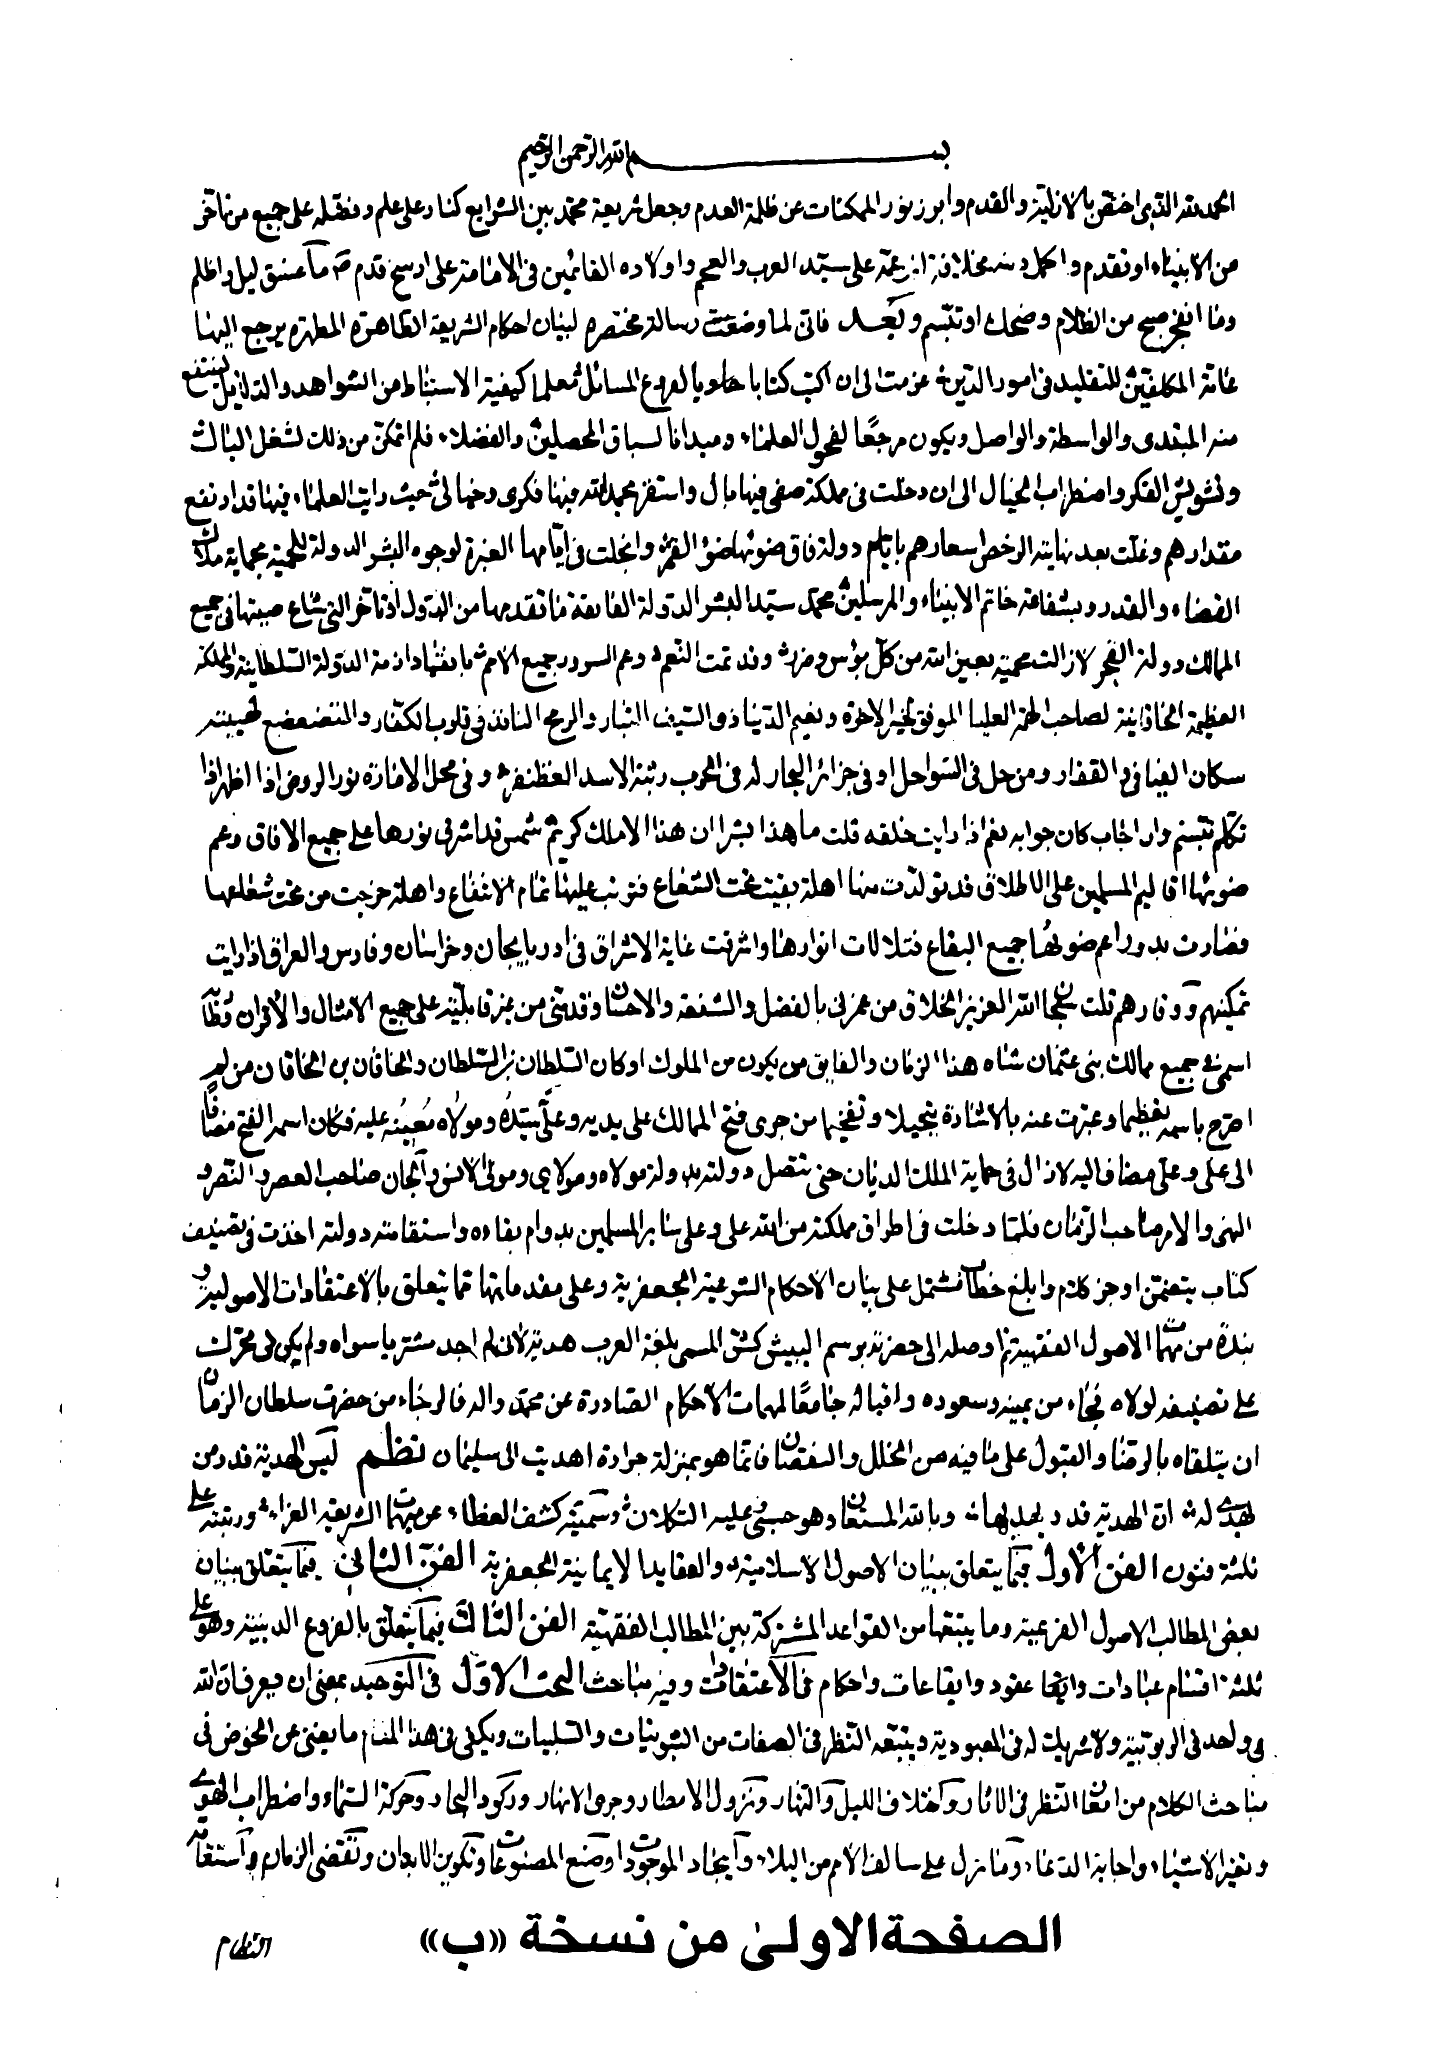 بسم الله الرحمن الرحيم
الحمد لله الذي اختص بالازلية والقدم وابرز نور الممكنات عن ظلمة العدم وجعل شريعة محمد بين الشرايع كنار على علم وفضله على جميع من تأخر
من الانبياء او تقدم واكمل دينه بخلافة ابن عمه على سيد العرب والعجم واولاده القائمين في الامامة على ارسخ قدم ما غسق ليل واظلم
وما انفجر صبح من الظلام وضحك او تبسم وبعد فاني لما وضعت رسالة مختصرة لبيان احكام الشريعة الطاهرة المطهرة يرجع اليها
عامة المكلفين للتقليد في امور الدين عزمت الى ان اكتب كتابا حاويا لفروع المسائل معلما كيفية الاستنباط من الشواهد والدلايل لينتفع
منه المبتدى والواسطة والواصل ويكون مرجعا لفحول العلماء وميدانا لسباق المحصلين والفضلاء فلم اتمكن من ذلك لشغل البال
وتشويش الفكر واضطراب الخيال الى ان دخلت في مملكة صفى فيها بال واستقر بحمد الله فيها فكرى وخيالى حيث رايت العلماء فيها قد ارتفع
مقدارهم وغلت بعد نهاية الرخص اسعارهم بايام دولة فاق ضوئها ضوء القمر وانجلت في ايامها الغبرة لوجوه البشر الدولة المحمية بحماية ملك
القضاء والقدر وبشفاعة خاتم الانبياء والمرسلين محمد سيد البشر الدولة الفايقة ما تقدمها من الدول او تاخر التى شاع صيتها في جميع
الممالك دولة القجر لازالت محمية بعين الله من كل بؤس وضر وقد تمت النعم وعم السرور جميع الامم بانقياد ازمة الدولة السلطانية والمملكة
العظيمة الخاقانية لصاحب الهمة العليا الموفق لخير الاخرة ونعيم الدنيا ذو السيف البتار والرمح النافذ في قلوب الكفار والمتضعضع لهيبته
سكان الفيافي والقفار ومن حل في السواحل او في جزائر البحار له في الحرب رتبة الاسد الغظنفر وفي محل الامارة نور الروض اذا ازهر اذا
تكلم تبسم وان اجاب كان جوابه نعم اذا رايت خلقه قلت ما هذا بشرا ان هذا الا ملك كريم شمس قد اشرق نورها على جميع الافاق وعم
ضوئها اقاليم المسلمين على الاطلاق قد تولدت منها اهلة بقيت تحت الشعاع فترتب عليها تمام الانتفاع واهلة خرجت من تحت شعاعها
فصارت بدورا عم ضوئها جميع البقاع فتلالات انوارها واشرقت غاية الاشراق في ادربايجان وخراسان وفارس والعراق اذا رايت
تمكينهم ووقارهم قلت سبحان الله العزيز الخلاق من عمرني بالفضل والشفقة والاحسان وقدمنى من غير قابلية على جميع الامثال والاقران ونوه
اسمى في جميع ممالك بنى عثمان شاه هذا الزمان والفايق من يكون من الملوك او كان السلطان بن السلطان والخاقان بن الخاقان من لم
اصرح باسمه تعظيما وعبرت عنه بالاشارة تبجيلا وتفخيما من جرى فتح الممالك على يديه وعلى سيده ومولاه معينه عليه فكان اسمه الفتح مضافا
الى على وعلى مضاف اليه لازال في حماية الملك الديان حتى تتصل دولته بدولة مولاه ومولاى ومولى الانس والجان صاحب العصر والنصر و
النهى والامر صاحب الزمان فلما دخلت في اطراف مملكته من الله على وعلى سائر المسلمين بدوام بقاءه واستقامة دولته اخذت في تصنيف
كتاب يتضمن اوجز كلام وابلغ خطاب مشتمل على بيان الاحكام الشرعية الجعفرية وعلى مقدماتها مما يتعلق بالاعتقادات الاصولية و
نبذة من مهمات الاصول الفقهية ثم اوصله الى حضرته برسم البيش كش المسمى بلغة العرب هدية لانى لم اجد مشتريا سواه ولم يكن لى محرك
على تصنيفه لولاه فجاء من يمنه وسعوده واقباله جامعا لمهمات الاحكام الصادرة عن محمد واله فالرجاء من حضرت سلطان الزمان
ان يتلقاه بالرضا والقبول على ما فيه من الخلل والنقصان فانما هو بمنزلة جرادة اهديت الى سليمان نظم ليس الهدية قدر من
يهدى له ان الهدية قدر مهديها وبالله المستعان وهو حسبى عليه التكلان وسميته كشف الغطاء عن مبهمات الشريعة الغراء ورتبته على
ثلثة فنون الفن الاول فيما يتعلق ببيان الاصول الاسلامية والعقايد الايمانية الجعفرية الفن الثاني فيما يتعلق ببيان
بعض المطالب الاصول الفرعية وما يتبعها من القواعد المشتركة بين المطالب الفقهية الفن الثالث فيما يتعلق بالفروع الدينية وهو على
ثلثة اقسام عبادات وايضا عقود وايقاعات واحكام فى الاعتقادات وفيه مباحث البحث الاول فى التوحيد بمعنى ان يعرف ان الله
واحد في الربوبية ولا شريك له في المعبودية ويتبعه النظر في الصفات من الثبوتيات والسلبيات ويكفى في هذا المقام ما يغنى عن الخوض في
مباحث الكلام من امعان النظر في الاثار واختلاف الليل والنهار ونزول الامطار وجرى الانهار وركود البحار وحركة السماء واضطراب الهوى
وتغير الاشياء واجابة الدعاء وما نزل على سالف الامم من البلاء وايجاد الموجودات وصنع المصنوعات وتكوين الابدان وتقضى الزمان واستقامة
النظام
الصفحة الاولىٰ من نسخة «ب»